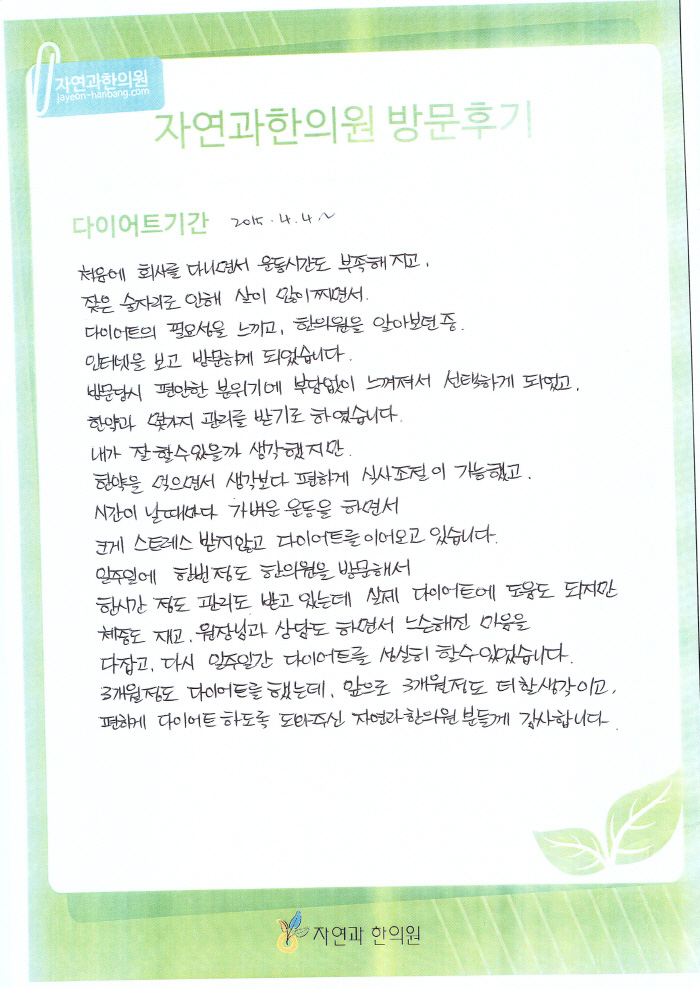 자연과한의원
jayeon-hanbang.com
자연과한의원 방문후기
다이어트기간 2015.4.4~
처음에 회사를 다니면서 운동시간도 부족해지고,
잦은 술자리로 인해 살이 많이 찌면서.
다이어트의 필요성을 느끼고, 한의원을 알아보던중.
인터넷을 보고 방문하게 되었습니다.
방문당시 편안한 분위기에 부담없이 느껴져서 선택하게 되었고,
한약과 몇가지 관리를 받기로 하였습니다.
내가 잘할수있을까 생각했지만.
한약을 먹으면서 생각보다 편하게 식사조절이 가능했고.
시간이 날때마다 가벼운 운동을 하면서
크게 스트레스 받지않고 다이어트를 이어오고 있습니다.
일주일에 한번정도 한의원을 방문해서
한시간 정도 관리도 받고 있는데 실제 다이어트에 도움도 되지만
체중도 재고, 원장님과 상담도 하면서 느슨해진 마음을
다잡고, 다시 일주일간 다이어트를 성실히 할수있었습니다.
3개월정도 다이어트를 했는데, 앞으로 3개월정도 더할생각이고,
편하게 다이어트 하도록 도와주신 자연과한의원 분들께 감사합니다.
자연과 한의원